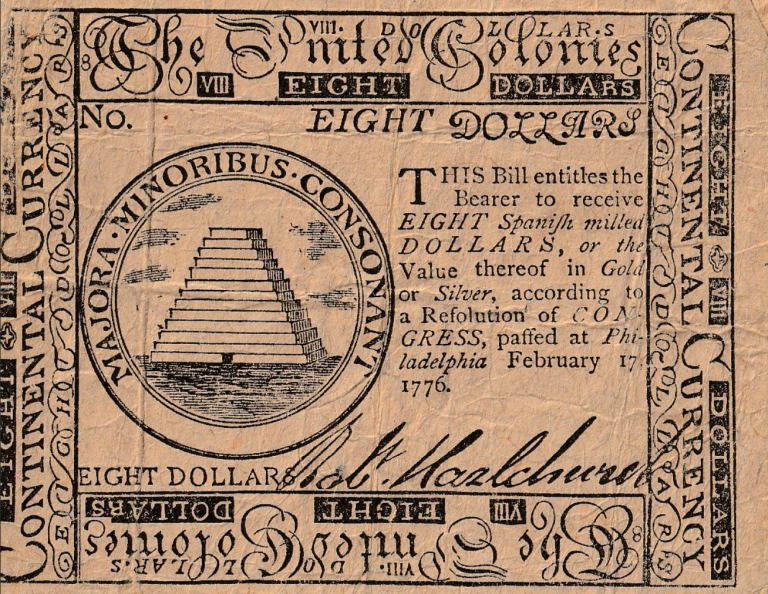 VIII. DOLLAR.S
8 The United Colonies
VIII EIGHT DOLLARS
No. EIGHT DOLLARS
MAJORA · MINORIBUS · CONSONANT
THIS Bill entitles the
Bearer to receive
EIGHT Spaniſh milled
DOLLARS, or the
Value thereof in Gold
or Silver, according to
a Reſolution of CON-
GRESS, paſſed at Phi-
ladelphia February 17,
1776.
EIGHT DOLLARS
EIGHT DOLLARS
VIII EIGHT DOLLARS
8 The United Colonies
VIII. DOLLAR.S
CONTINENTAL CURRENCY
EIGHT VIII
EIGHT DOLLARS
CONTINENTAL CURRENCY
EIGHT VIII DOLLARS